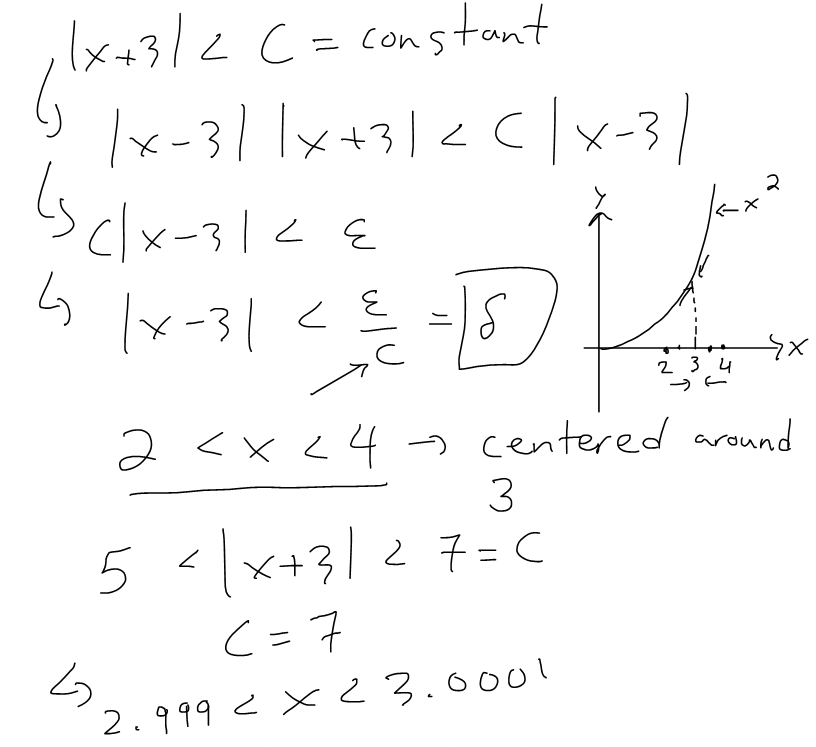 |x+3| < C = constant
|x-3| |x+3| < C|x-3|
C|x-3| < ε
|x-3| < ε/C = δ
y
←x²
x
2 3 4
→ ←
2 < x < 4 → centered around
3
5 < |x+3| < 7 = C
C = 7
2.999 < x < 3.0001